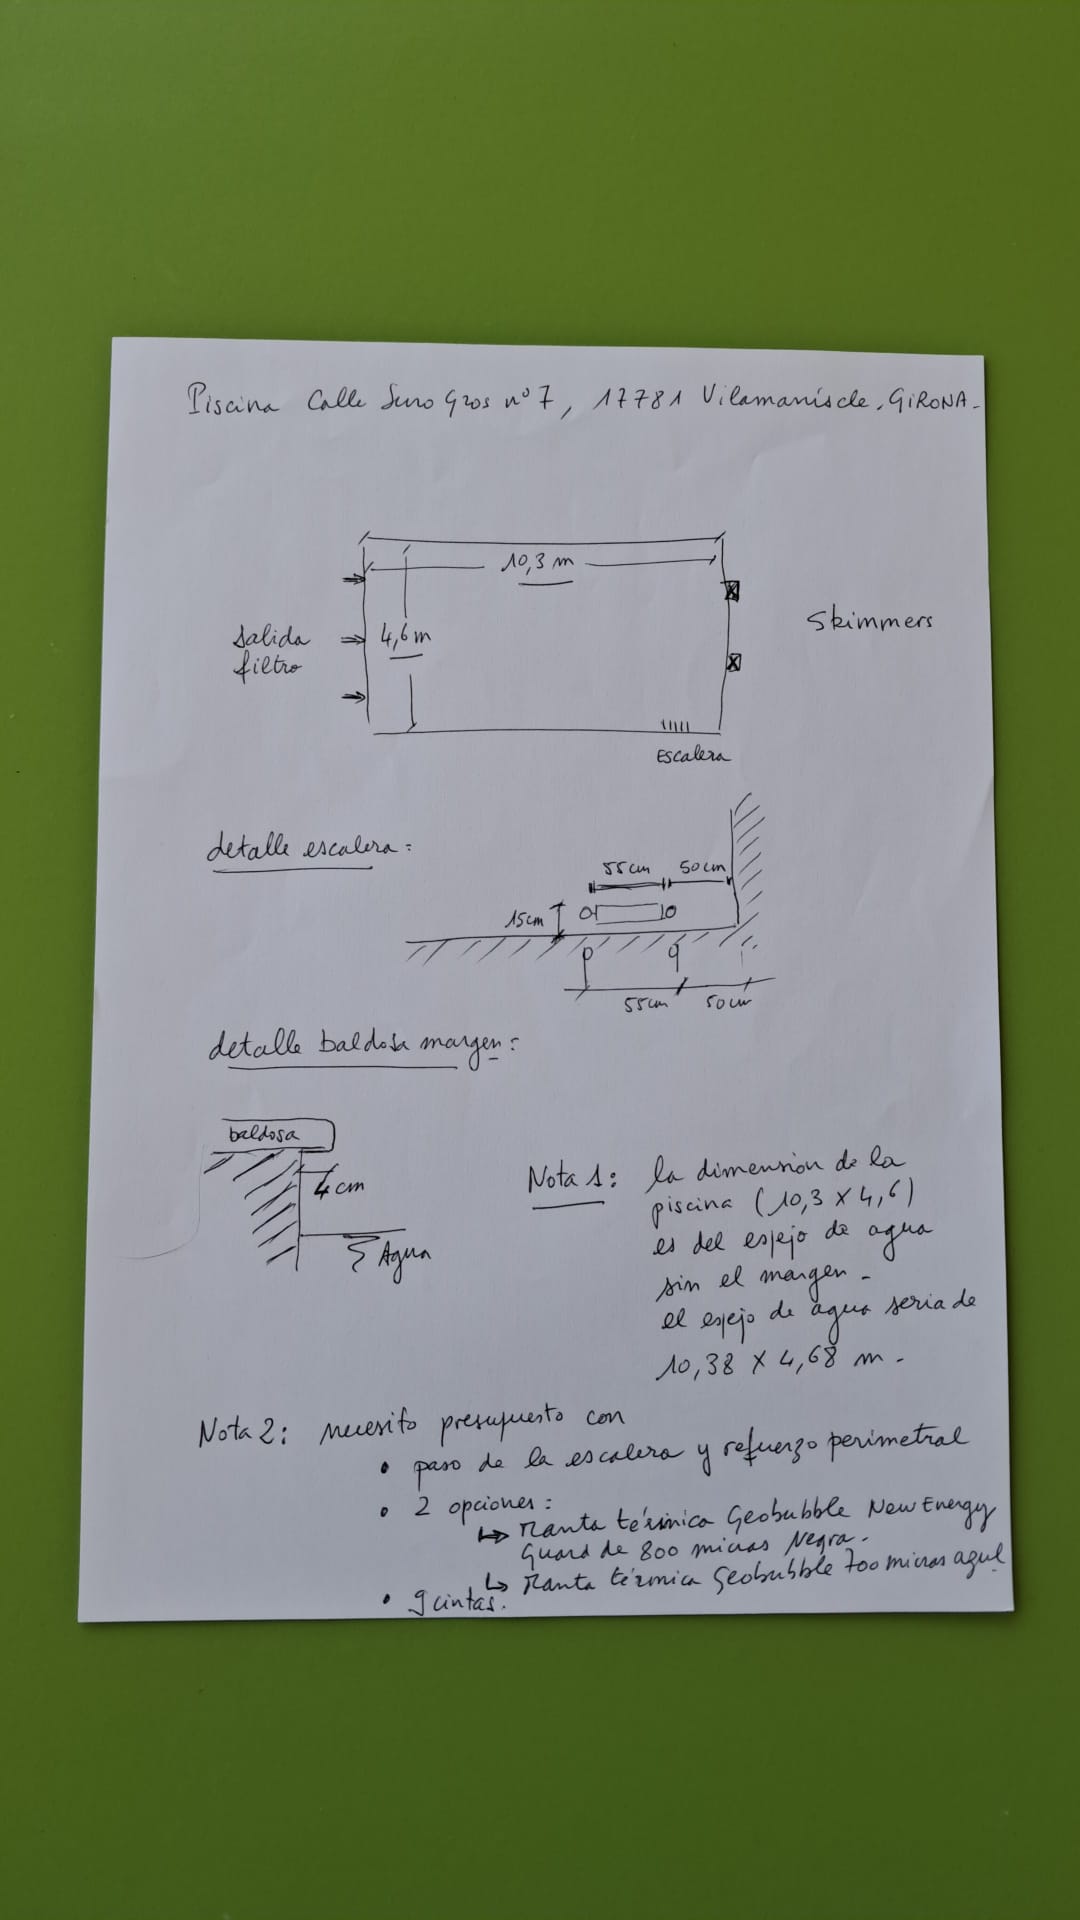 Piscina Calle Suro Gros nº 7, 17781 Vilamaniscle, GIRONA.
10,3 m
Skimmers
Salida
filtro
4,6 m
Escalera
detalle escalera:
55 cm 50 cm
15 cm
55 cm 50 cm
detalle baldosa margen:
baldosa
4 cm
Agua
Nota 1: la dimension de la
piscina (10,3 x 4,6)
es del espejo de agua
sin el margen.
el espejo de agua seria de
10,38 x 4,68 m.
Nota 2: necesito presupuesto con
• paso de la escalera y refuerzo perimetral
• 2 opciones:
↳ Manta térmica Geobubble New Energy
Guard de 800 micras Negra.
↳ Manta térmica Geobubble 700 micras azul
• 9 cintas.